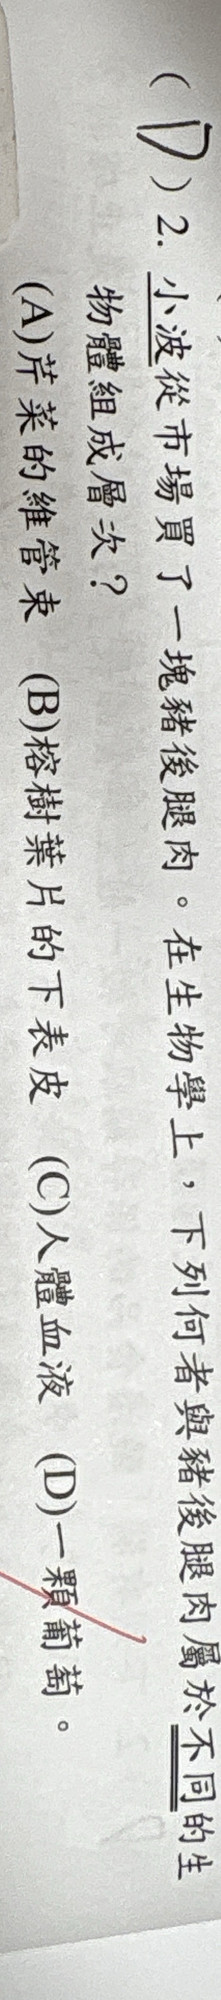 ( D ) 2. 小波從市場買了一塊豬後腿肉。在生物學上，下列何者與豬後腿肉屬於不同的生
物體組成層次？
(A)芹菜的維管束 (B)榕樹葉片的下表皮 (C)人體血液 (D)一顆葡萄。